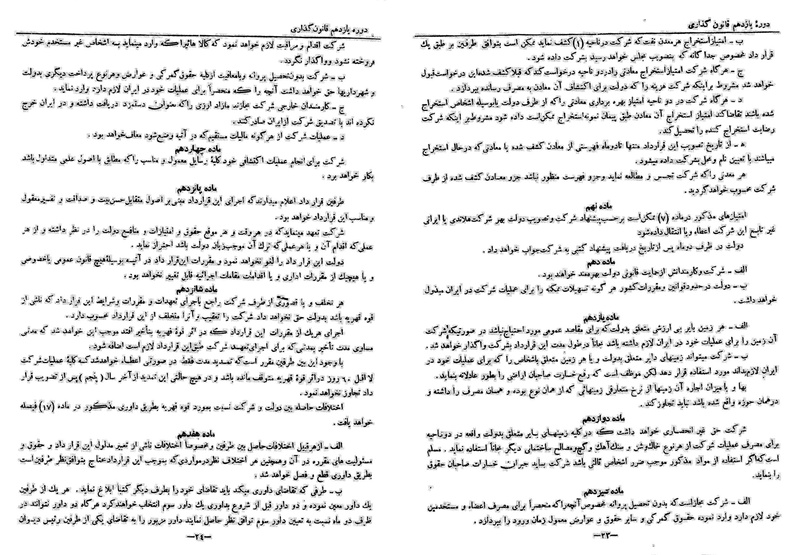 دورهٔ یازدهم قانون گذاری
ب - امتیاز استخراج هر معدن نفت که شرکت در ناحیه (۱) کشف نماید ممکن است بتوافق طرفین بر طبق یک
قرار داد مخصوص جداگانه که بتصویب مجلس خواهد رسید بشرکت داده شود.
ج - هر گاه شرکت امتیاز استخراج معادنی را در دو ناحیه درخواست کند که قبلا کشف شده این درخواست قبول
خواهد شد مشروط بر اینکه شرکت هزینه را که دولت برای اکتشاف آن معادن به مصرف رسانده بپردازد.
د - هر گاه شرکت در دو ناحیه امتیاز بهره برداری معادنی را که از طرف دولت یا بوسیله اشخاص استخراج
شده باشند تقاضا کند امتیاز استخراج آن معادن طبق پیمان نمونه استخراج ممکن است داده شود مشروط بر اینکه شرکت
رضایت استخراج کننده را تحصیل کند.
ه - از تاریخ تصویب این قرارداد منتها تا دو ماه فهرستی از معادن کشف شده یا معادنی که در حال استخراج
میباشند با تعیین نام و محل بشرکت داده میشود.
هر معدنی را که شرکت تجسس و مطالعه نماید و جزو فهرست منظور نباشد جزو معادن کشف شده از طرف
شرکت محسوب خواهد گردید.
ماده نهم
امتیازهای مذکور در ماده (۷) ممکن است بر حسب پیشنهاد شرکت و تصویب دولت بهر شرکت هلاندی یا ایرانی
غیر تابع این شرکت اعطاء و یا انتقال داده شود
دولت در ظرف دو ماه پس از تاریخ دریافت پیشنهاد کتبی به شرکت جواب خواهد داد.
ماده دهم
الف - شرکت و کارمندانش از حمایت قانونی دولت بهره مند خواهند بود.
ب - دولت در حدود قوانین و مقررات کشور هر گونه تسهیلات ممکنه را برای عملیات شرکت در ایران مبذول
خواهد داشت.
ماده یازدهم
الف - هر زمین بایر بی ارزشی متعلق بدولت که برای مقاصد عمومی مورد احتیاج نباشد در صورتیکه شرکت
آن زمین را برای عملیات خود در ایران لازم داشته باشد مجاناً در طول مدت این قرارداد بشرکت واگذار خواهد شد.
ب - شرکت میتواند زمینهای دایر متعلق بدولت و یا هر زمین متعلق باشخاص را که برای عملیات خود در
ایران لازم بداند مورد استفاده قرار دهد لکن موظف است که رفع خسارت صاحبان اراضی را بطور عادلانه بنماید.
بها و یا میزان اجاره آن زمینها از نرخ متعارفی زمینهائی که از همان نوع بوده و همان مصرف را داشته و
در همان حوزه واقع شده باشد نباید تجاوز کند.
ماده دوازدهم
شرکت حق غیر انحصاری خواهد داشت که در کلیه زمینهای بایر متعلق بدولت واقعه در دو ناحیه
برای مصرف عملیات شرکت از هر نوع خاک و شن و سنگ آهک و گچ و مصالح ساختمانی دیگر مجاناً استفاده نماید. مسلم
است که اگر استفاده از مواد مذکور موجب ضرر اشخاص ثالثی باشد شرکت بباید جبران خسارات صاحبان حقوق
را بنماید.
ماده سیزدهم
الف - شرکت مجاز است که بدون تحصیل پروانه مخصوص آنچه را که منحصراً برای مصرف اعضاء و مستخدمین
خود لازم دارد وارد نموده حقوق گمرکی و سایر حقوق و عوارض معمول زمان ورود را بپردازد.
—۲۳—
دوره یازدهم قانون گذاری
شرکت اقدام و مراقبت لازم خواهد نمود که کالا هائیرا که وارد مینماید به اشخاص غیر مستخدم خودش
فروخته نشود و واگذار نگردد.
ب - شرکت بدون تحصیل پروانه و با معافیت از کلیه حقوق گمرکی و عوارض و هر نوع پرداخت دیگری بدولت
و شهرداریها حق خواهد داشت آنچه را که منحصراً برای عملیات خود در ایران لازم دارد وارد نماید.
ج - کارمندان خارجی شرکت مجازند مازاد ارزی را که بعنوان دستمزد دریافت داشته و در ایران خرج
نکرده اند با تصدیق شرکت از ایران صادر کنند.
د - عملیات شرکت از هر گونه مالیات مستقیم که در آتیه وضع شود معاف خواهد بود.
ماده چهاردهم
شرکت برای انجام عملیات اکتشافی خود کلیهٔ وسایل معمول و مناسب را که مطابق با اصول علمی متداول باشد
بکار خواهد برد.
ماده پانزدهم
طرفین قرار داد اعلام میدارند که اجرای این قرارداد مبنی بر اصول متقابل حسن نیت و صداقت و تفسیر معقول
و مناسب این قرارداد خواهد بود.
شرکت تعهد مینماید که در هر وقت و هر موقع حقوق و امتیازات و منافع دولت را در نظر داشته و از هر
عملی که اقدام آن و یا هر عملی که ترک آن موجب زیان دولت باشد احتراز نماید.
دولت این قرار داد را لغو نخواهد نمود و مقررات این قرار داد در آتیه بوسیله هیچ قانون عمومی یا خصوصی
و یا هیچیک از مقررات اداری و یا اقدامات مقامات اجرائیه قابل تغییر نخواهد بود.
ماده شانزدهم
هر تخلف و یا قصوری از طرف شرکت راجع باجرای تعهدات و مقررات و شرایط این قرار داد که ناشی از
قوه قهریه باشد بدولت حق نخواهد داد شرکت را تعقیب و آنرا متخلف از این قرارداد محسوب دارد.
اجرای هر یک از مقررات این قرارداد که در اثر قوهٔ قهریه بتأخیر افتد موجب این خواهد شد که مدتی
مساوی مدت تأخیر بمدتی که برای اجرای تعهد شرکت طبق این قرارداد لازم است اضافه شود.
با وجود این بین طرفین مقرر است که تمدید مدت فقط در صورتی اعطاء خواهد شد که کلیهٔ عملیات شرکت
لا اقل ۶۰ روز در اثر قوهٔ قهریه متوقف مانده باشد و در هیچ حالتی این تمدید از آخر سال (پنجم) پس از تصویب قرار
داد تجاوز نخواهد نمود.
اختلافات حاصله بین دولت و شرکت نسبت بمورد قوه قهریه بطریق داوری مذکور در ماده (۱۷) فیصله
خواهد یافت.
ماده هفدهم
الف - از هر قبیل اختلافات حاصل بین طرفین و مخصوصاً اختلافات ناشی از تعبیر مدلول این قرار داد و حقوق و
مسئولیت های مقرره در آن و همچنین هر اختلاف نظر در مواردی که بموجب این قرارداد محتاج بتوافق نظر طرفین است
بطریق داوری قطع و فصل خواهد شد.
ب - طرفی که تقاضای داوری میکند باید تقاضای خود را بطرف دیگر کتباً ابلاغ نماید. هر یک از طرفین
یک داور معین نموده و دو داور قبل از شروع بداوری یک داور سوم انتخاب خواهند کرد هر گاه دو داور نتوانند در
ظرف دو ماه نسبت به تعیین داور سوم توافق نظر حاصل نمایند داور مزبور را به تقاضای یکی از طرفین رئیس دیوان
—۲٤—